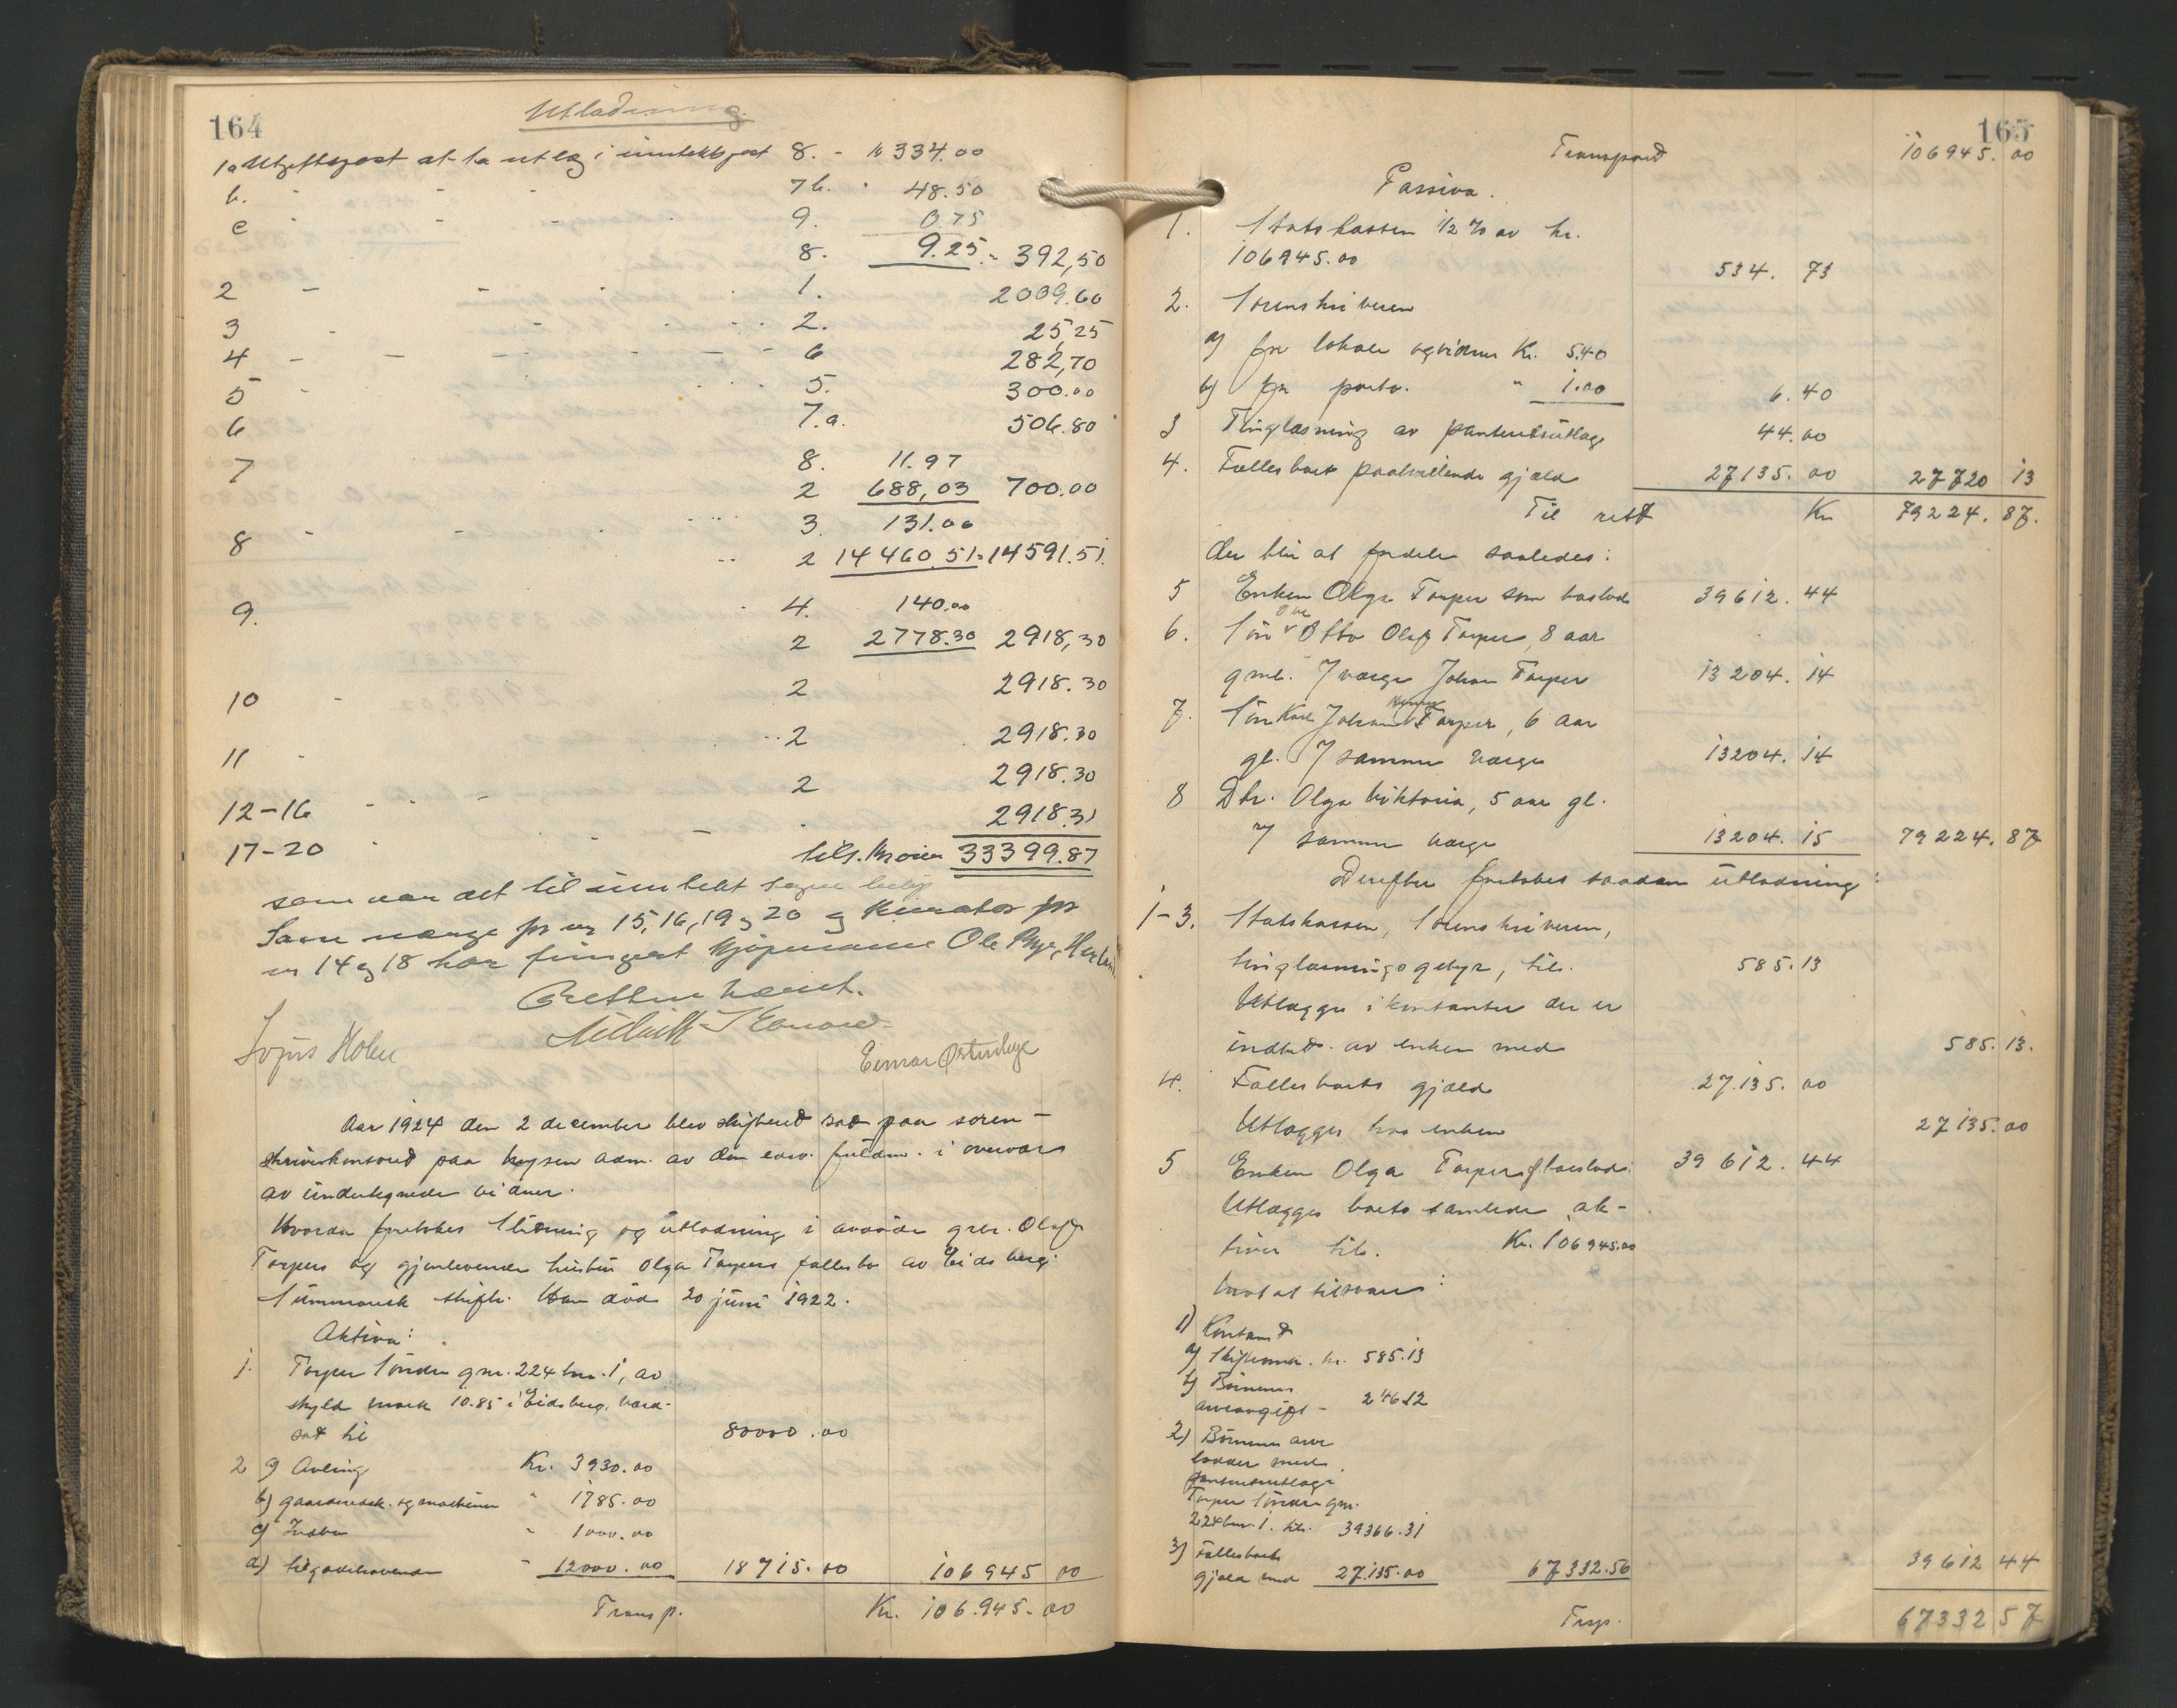 164
Utlodning
1a Utgiftspost at ta utlæg i inntektspost 8. - kr 334.00
b. - - - 7b. " 48.50
c - - 9. 0.75
8. 9.25.- 392,50
2 - - - 1. 2009.60
3 - - - 2. 25,25
4 - - - - - - 6 282,70
5 - - - 5. 300.00
6 7.a. 506.80
7 8. 11.97
2 688,03 700.00
8 - - 3. 131.00
2 14460.51 = 14591.51.
9. 4. 140.00
2 2778.30 2918,30
10 - 2 2918.30
11 - 2 2918.30
12-16 - - - 2 2918.30
17-20 - - - 2918.31
tils. Kroner 33399.87
som var det til inntekt
Som værge for nr 15, 16, 19 og 20 og kurator for
nr 14 og 18 har fungert kjøpmann Ole
Retten hævet.
Einar Østerhage
Aar 1924 den 2 december blev skifteret sat paa soren-
skriverkontoret paa Mysen adm. av den edsv. fuldm. i overvær
av undertegnede vidner.
Hvorda foretokes slutning og utlodning i avdøde grbr. Olaf
Torpers og gjenlevende hustru Olga Torpers fællesbo av Eidsberg.
Summarisk skifte. Han døde 20 juni 1922.
Aktiva:
1. Torper søndre gnr. 224 bnr. 1, av
skyld mark 10.85 i Eidsberg, værd-
sat til 80000.00
2 a) Avling Kr. 3930.00
b) gaardsredsk. og maskiner " 1785.00
c) Indbo " 1000.00
d) tilgodehavende " 12000.00 18715.00 106945 00
Transp. Kr. 106.945.00
165
Transport 106945.00
Passiva.
1. Statskassen 1/2 % av kr.
106945.00 534. 73
2. Sorenskriveren
a) for lokale og vidner Kr. 5.40
b) for porto. " 1.00 6.40
3 Tinglæsning av panteutlæg 44.00
4. Fællesboets paahvilende gjæld 27135.00 27720 13
Til rest Kr 79224.87.
der blir at fordele saaledes:
5 Enken Olga Torper som boslod 39612.44
6. Søn Otto Olaf Torper, 8 aar
gml. / værge Johan Torper 13204.14
7. Søn Karl Johan Torper, 6 aar
gl. / samme værge 13204.14
8 Dtr. Olga Viktoria, 5 aar gl.
/ samme værge 13204.15 79224.87
Derefter foretokes saadan utlodning:
1-3. Statskassen, Sorenskriveren,
tinglæsningsgebyr, tils. 585.13
Utlægges i kontanter der er
indbet. av enken med 585.13.
4. Fællesboets gjæld 27.135.00
Utlægges hos enken 27135.00
5 Enken Olga Torpers boslod. 39612.44
Utlægges boets samlede ak-
tiver tils. Kr. 106945.00
mot at tilsvare:
1) Kontant
a) Skifteomk. kr. 585.13
b) Børnenes
arveavgift - 246.12
2) Børnenes arve
lodder med
panteutlæg i
Torper søndre gnr.
224 bnr. 1. tils. 39366.31
3) Fællesboets
gjæld med 27.135.00 67332.56 39612 44
Trsp. 67332 57